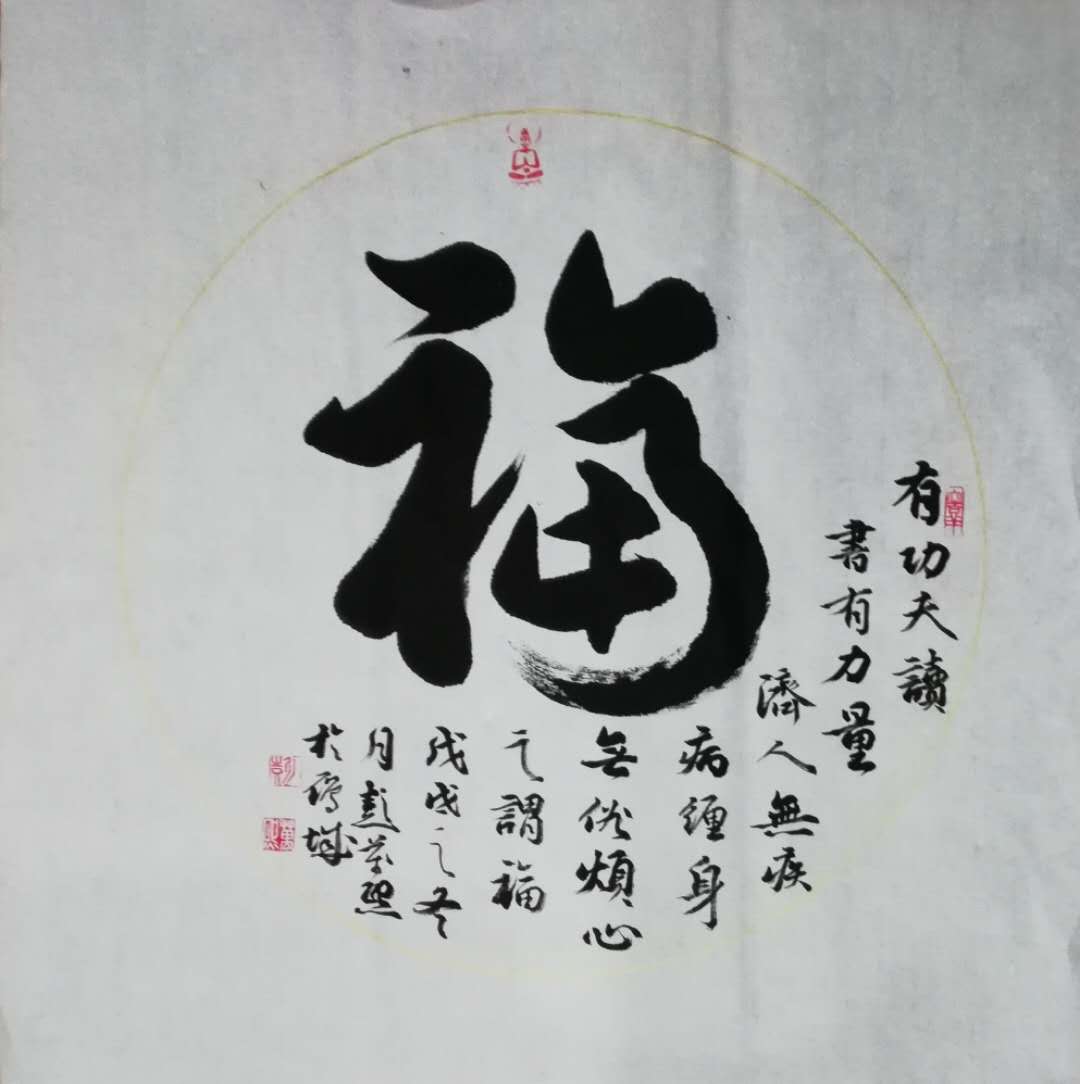 福
有功夫讀
書有力量
濟人無疾
病纏身
無俗煩心
之謂福
戊戌之冬
月彭萬熙
於城